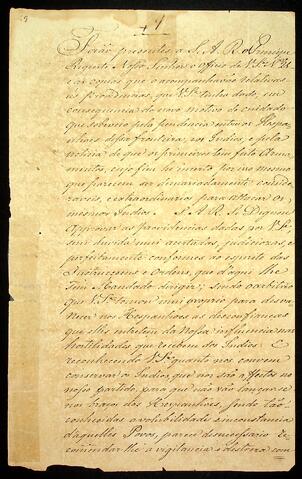 Serão presentes a S. A. R. o Principe
Regente Nosso Senhor o Officio de V. S.ª N.º
e as copias que o acompanhavão relativas
as providencias, que V. S.ª tinha dado, em
consequencia do novo motivo de cuidado
que sobreveio pela pendencia entre os Hespa-
nhoes dessa fronteira, e os Indios, e pela
noticia de que os primeiros tem feito Arma-
mentos, cujo fim he incerto, por isso mesmo
que parecem ser demarcadamente conside-
raveis, e extraordinarios para atacar os
mesmos Indios. S. A. R. Se Dignou
Approvar as providencias dadas por V. S.ª
sem duvida mui acertadas, judiciosas, e
perfeitamente conformes ao espirito das
Instrucçoens e Ordens, que d'aqui lhe
tem Mandado dirigir; sendo o arbitrio
que V. S.ª tomou mui proprio para desva-
necer nos Hespanhoes as desconfianças
que elles nutrem da nossa influencia nas
hostilidades que recebem dos Indios. E
reconhecendo V. S.ª quanto nos convem
conservar os Indios que nos são affectos no
nosso partido, para que não vão lançar-se
nos braços dos Hespanhoes, sendo tão
conhecidas a volubilidade e inconstancia
daquelles Povos, parece desnecessario re-
comendar-lhe a vigilancia e destreza com